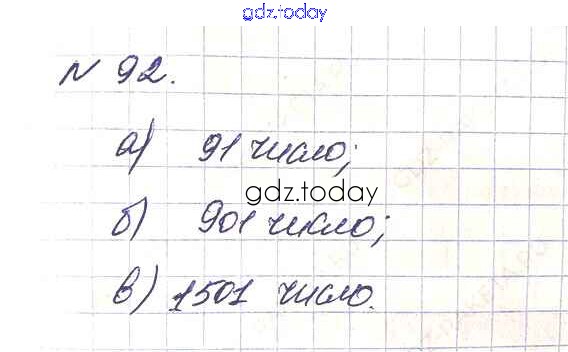 gdz.today
N 92.
а) 91 число;
gdz.today
б) 901 число;
в) 1501 число.